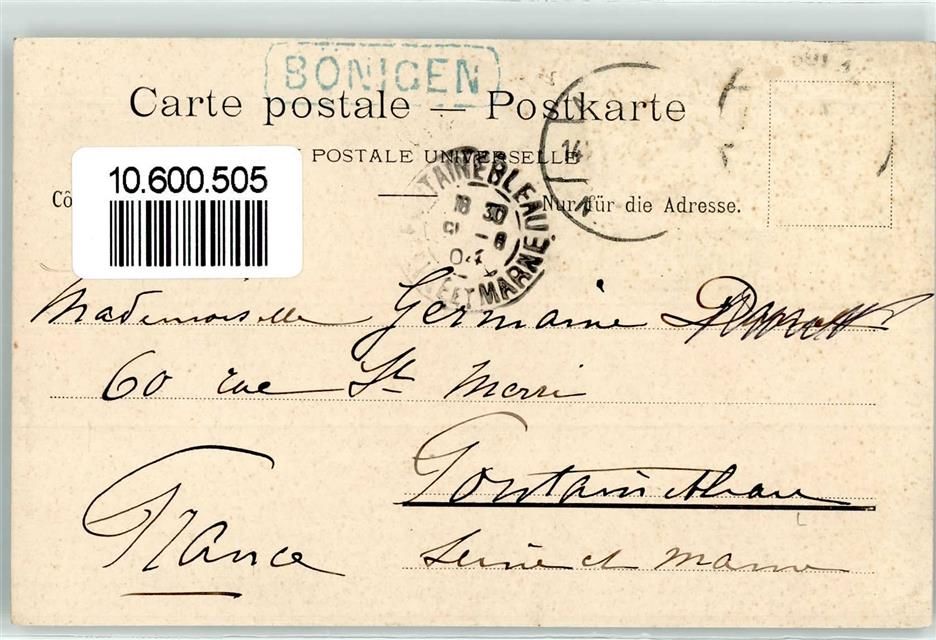 BÖNIGEN
Carte postale — Postkarte
POSTALE UNIVERSELLE
10.600.505
Cô
Nur für die Adresse.
14
TAINEBLEAU
18 30
9 -8
04
ET MARNE
Mademoiselle Germaine
60 rue St Merri
Fontainebleau
France
Seine et Marne